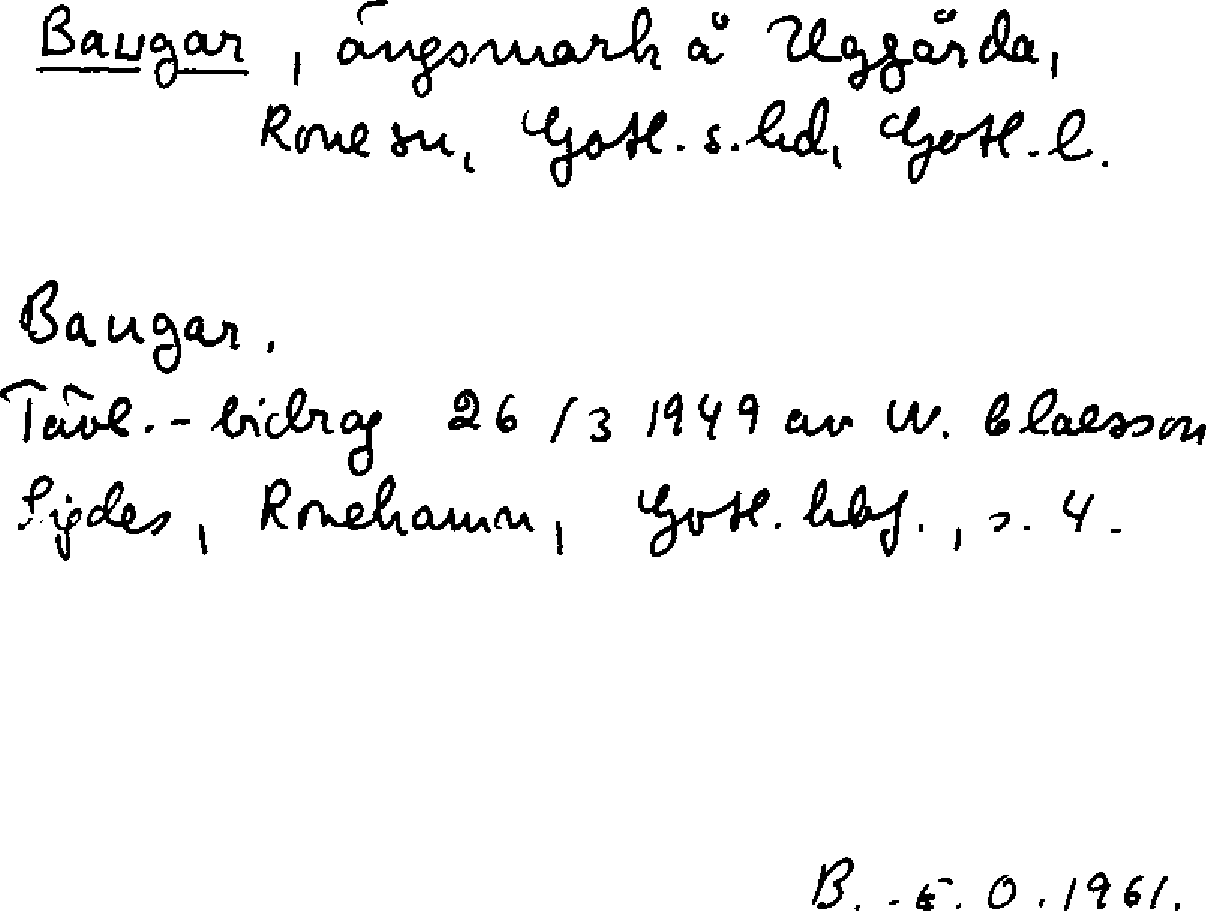 Baugar, ängsmark å Uggårda,
Rone sn, Gotl. s. hd, Gotl. l.
Baugar.
Tävl.-bidrag 26/3 1949 av W. Claesson
Sigdes, Ronehamn, Gotl. hbf., s. 4.
B.-E. O. 1961.